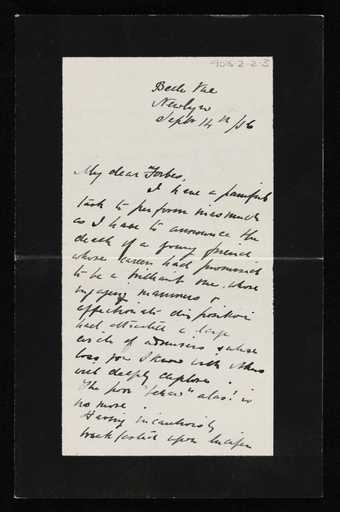 9015-2-2-3
Belle Vue
Newlyn
Septr 14th/86
My dear Forbes,
I have a painful
task to perform inasmuch
as I have to announce the
death of a young friend
whose career had promised
to be a brilliant one, whose
engaging manners &
affectionate disposition
had attracted a large
circle of admirers & whose
loss you I know with others
will deeply deplore.
The poor "jackdaw" alas! is
no more.
Having incautiously
breakfasted upon lucifer